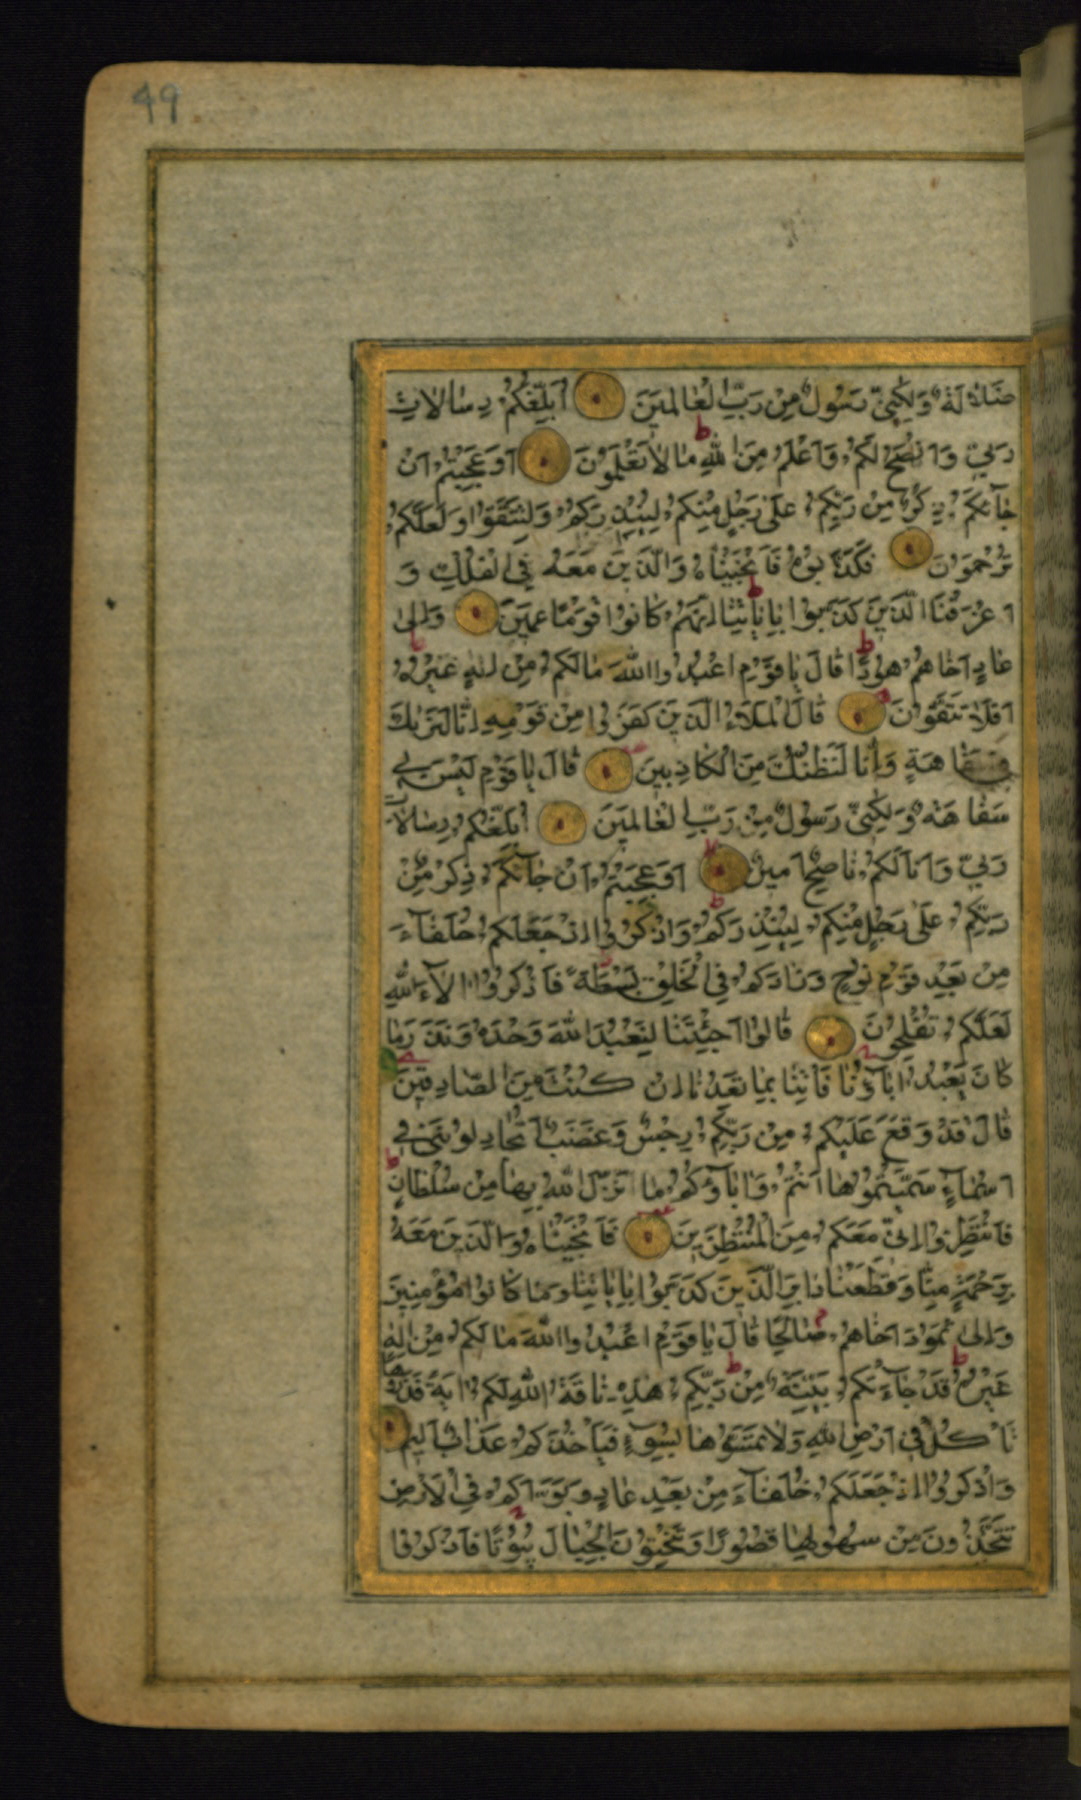 49
ضَلَالَةٌ وَلٰكِنّى رَسُولٌ مِنْ رَبِّ الْعٰالَمِينَ اُبَلِّغُكُمْ رِسٰالَاتِ
رَبّى وَاَنْصَحُ لَكُمْ وَاَعْلَمُ مِنَ اللّٰهِ مٰا لَا تَعْلَمُونَ اَوَعَجِبْتُمْ اَنْ
جٰآءَكُمْ ذِكْرٌ مِنْ رَبِّكُمْ عَلٰى رَجُلٍ مِنْكُمْ لِيُنْذِرَكُمْ وَلِتَتَّقُوا وَلَعَلَّكُمْ
تُرْحَمُونَ فَكَذَّبُوهُ فَاَنْجَيْنٰاهُ وَالَّذِينَ مَعَهُ فِى الْفُلْكِ وَ
اَغْرَقْنَا الَّذِينَ كَذَّبُوا بِاٰيٰاتِنٰا اِنَّهُمْ كٰانُوا قَوْمًا عَمِينَ وَاِلٰى
عٰادٍ اَخٰاهُمْ هُودًا قٰالَ يٰا قَوْمِ اعْبُدُوا اللّٰهَ مٰا لَكُمْ مِنْ اِلٰهٍ غَيْرُهُ
اَفَلَا تَتَّقُونَ قٰالَ الْمَلَاُ الَّذِينَ كَفَرُوا مِنْ قَوْمِهِ اِنّٰا لَنَرٰيكَ
فِى سَفٰاهَةٍ وَاِنّٰا لَنَظُنُّكَ مِنَ الْكٰاذِبِينَ قٰالَ يٰا قَوْمِ لَيْسَ بِى
سَفٰاهَةٌ وَلٰكِنّى رَسُولٌ مِنْ رَبِّ الْعٰالَمِينَ اُبَلِّغُكُمْ رِسٰالَاتِ
رَبّى وَاَنَا لَكُمْ نٰاصِحٌ اَمِينٌ اَوَعَجِبْتُمْ اَنْ جٰآءَكُمْ ذِكْرٌ مِنْ
رَبِّكُمْ عَلٰى رَجُلٍ مِنْكُمْ لِيُنْذِرَكُمْ وَاذْكُرُوا اِذْ جَعَلَكُمْ خُلَفٰآءَ
مِنْ بَعْدِ قَوْمِ نُوحٍ وَزٰادَكُمْ فِى الْخَلْقِ بَسْطَةً فَاذْكُرُوا اٰلَآءَ اللّٰهِ
لَعَلَّكُمْ تُفْلِحُونَ قٰالُوا اَجِئْتَنٰا لِنَعْبُدَ اللّٰهَ وَحْدَهُ وَنَذَرَ مٰا
كٰانَ يَعْبُدُ اٰبٰآؤُنٰا فَاْتِنٰا بِمٰا تَعِدُنٰا اِنْ كُنْتَ مِنَ الصّٰادِقِينَ
قٰالَ قَدْ وَقَعَ عَلَيْكُمْ مِنْ رَبِّكُمْ رِجْسٌ وَغَضَبٌ اَتُجٰادِلُونَنِى فِى
اَسْمٰآءٍ سَمَّيْتُمُوهٰا اَنْتُمْ وَاٰبٰآؤُكُمْ مٰا نَزَّلَ اللّٰهُ بِهٰا مِنْ سُلْطٰانٍ
فَانْتَظِرُوا اِنّى مَعَكُمْ مِنَ الْمُنْتَظِرِينَ فَاَنْجَيْنٰاهُ وَالَّذِينَ مَعَهُ
بِرَحْمَةٍ مِنّٰا وَقَطَعْنٰا دٰابِرَ الَّذِينَ كَذَّبُوا بِاٰيٰاتِنٰا وَمٰا كٰانُوا مُؤْمِنِينَ
وَاِلٰى ثَمُودَ اَخٰاهُمْ صٰالِحًا قٰالَ يٰا قَوْمِ اعْبُدُوا اللّٰهَ مٰا لَكُمْ مِنْ اِلٰهٍ
غَيْرُهُ قَدْ جٰآءَتْكُمْ بَيِّنَةٌ مِنْ رَبِّكُمْ هٰذِهِ نٰاقَةُ اللّٰهِ لَكُمْ اٰيَةً فَذَرُوهٰا
تَاْكُلْ فِى اَرْضِ اللّٰهِ وَلَا تَمَسُّوهٰا بِسُوٓءٍ فَيَاْخُذَكُمْ عَذٰابٌ اَلِيمٌ
وَاذْكُرُوا اِذْ جَعَلَكُمْ خُلَفٰآءَ مِنْ بَعْدِ عٰادٍ وَبَوَّاَكُمْ فِى الْاَرْضِ
تَتَّخِذُونَ مِنْ سُهُولِهٰا قُصُورًا وَتَنْحِتُونَ الْجِبٰالَ بُيُوتًا فَاذْكُرُوا